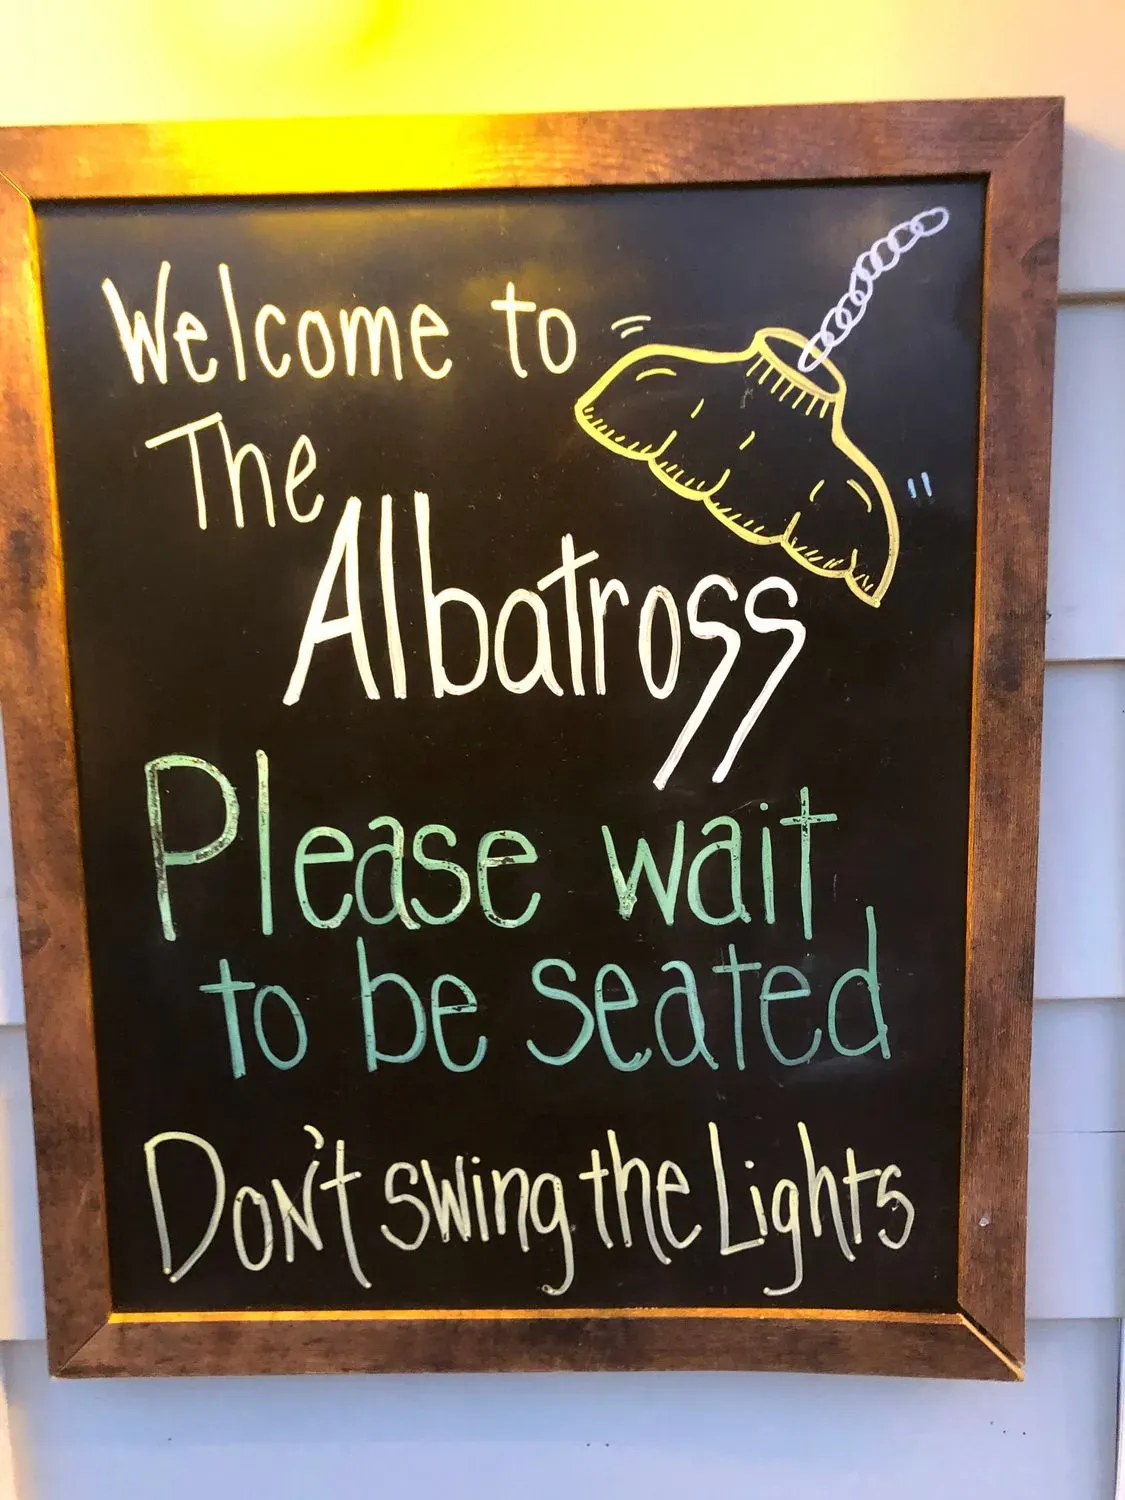 Welcome to
The
Albatross
Please wait
to be seated
Don't swing the Lights